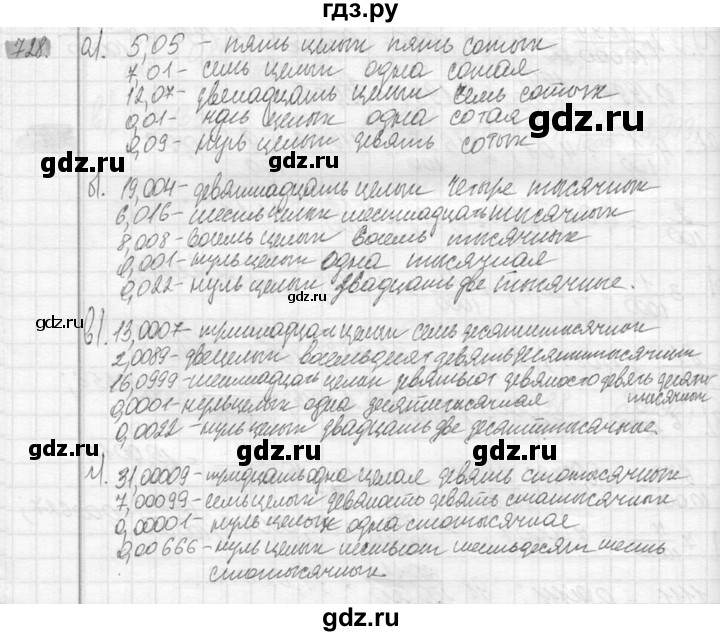 гдз.ру
728. а). 5,05 – пять целых пять сотых
7,01 – семь целых одна сотая
12,07 – двенадцать целых семь сотых
0,01 – нуль целых одна сотая
0,09 – нуль целых девять сотых
gdz.ru gdz.ru
б). 19,004 – девятнадцать целых четыре тысячных
6,016 – шесть целых шестнадцать тысячных
8,008 – восемь целых восемь тысячных
0,001 – нуль целых одна тысячная
gdz.ru
0,022 – нуль целых двадцать две тысячные.
gdz.ru gdz.ru
в). 13,0007 – тринадцать целых семь десятитысячных
2,0089 – две целых восемьдесят девять десятитысячных
16,0999 – шестнадцать целых девятьсот девяносто девять десяти
тысячных
0,0001 – нуль целых одна десятитысячная
0,0022 – нуль целых двадцать две десятитысячные.
gdz.ru gdz.ru
г). 31,00009 – тридцать одна целая девять стотысячных
7,00099 – семь целых девяность девять стотысячных
0,00001 – нуль целых одна стотысячная
gdz.ru
0,00666 – нуль целых шестьсот шестьдесят шесть
стотысячных.
gdz.ru gdz.ru
гдз.ру